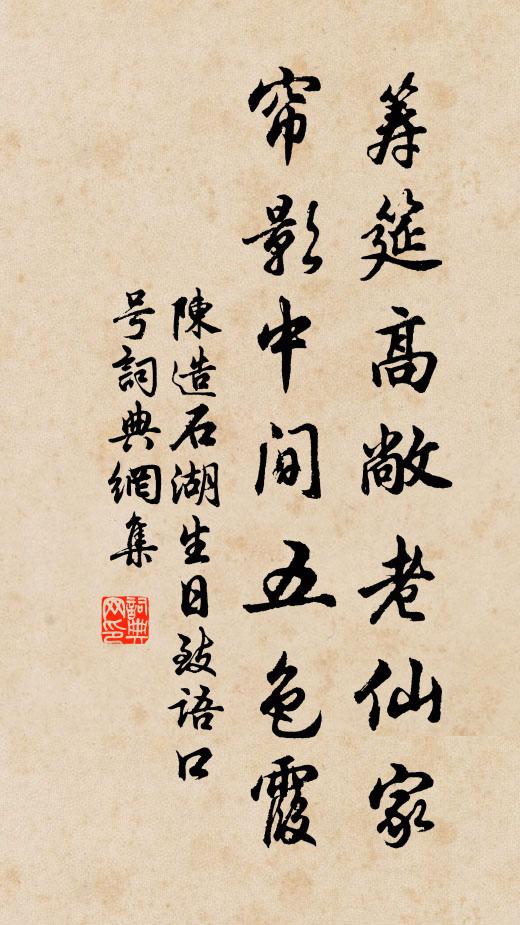 筭筵高敞老仙家
帘影中间五色霞
陳造石湖生日致语口
号詞典網集
詞典
网印